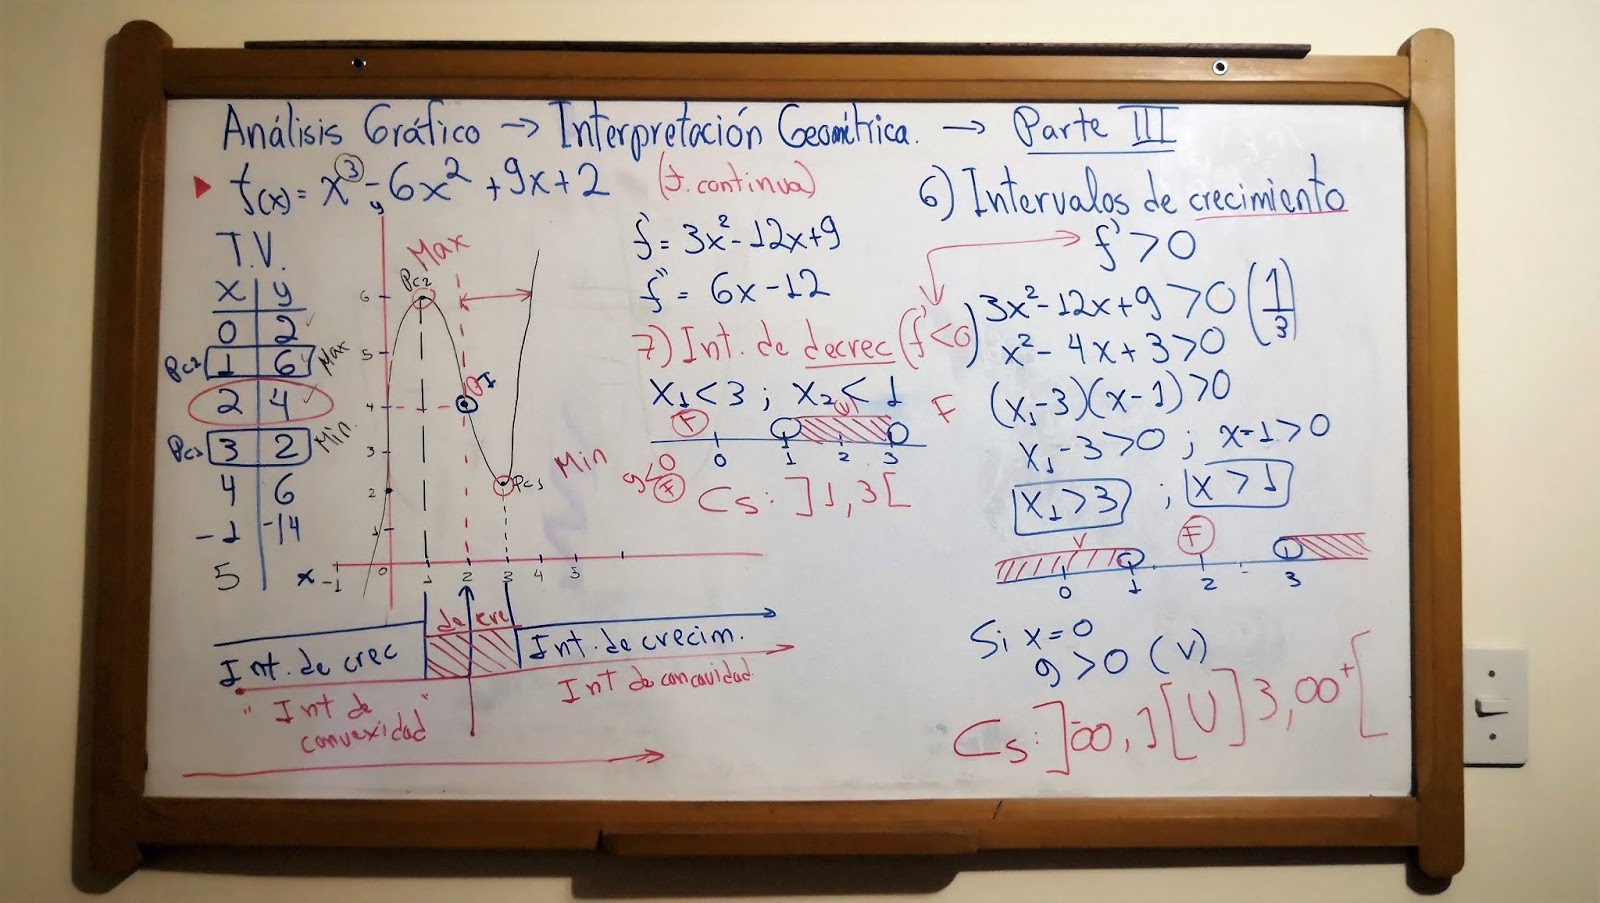 Análisis Gráfico → Interpretación Geométrica. → Parte III
f(x) = x³ - 6x² + 9x + 2 (f. continua)
T.V.
x | y
0 | 2
Pc2 1 | 6 Max
2 | 4
Pc1 3 | 2 Min.
4 | 6
-1 | -14
5
y
Max
Pc2
6
5
4
3
2
1
PI
Pc1 Min
x -1 0 1 2 3 4 5
de cre
Int. de crec
Int. de crecim.
"Int de convexidad"
Int de concavidad
f' = 3x² - 12x + 9
f'' = 6x - 12
7) Int. de decrec (f' < 0)
x₁ < 3 ; x₂ < 1
F V F
0 1 2 3
9 < 0
F
Cs: ]1, 3[
6) Intervalos de crecimiento
f' > 0
3x² - 12x + 9 > 0 (1/3)
x² - 4x + 3 > 0
(x₁ - 3)(x - 1) > 0
x₁ - 3 > 0 ; x - 1 > 0
x₁ > 3 ; x > 1
V F
0 1 2 3
Si x = 0
9 > 0 (V)
Cs: ]-∞, 1[ U ]3, ∞⁺[